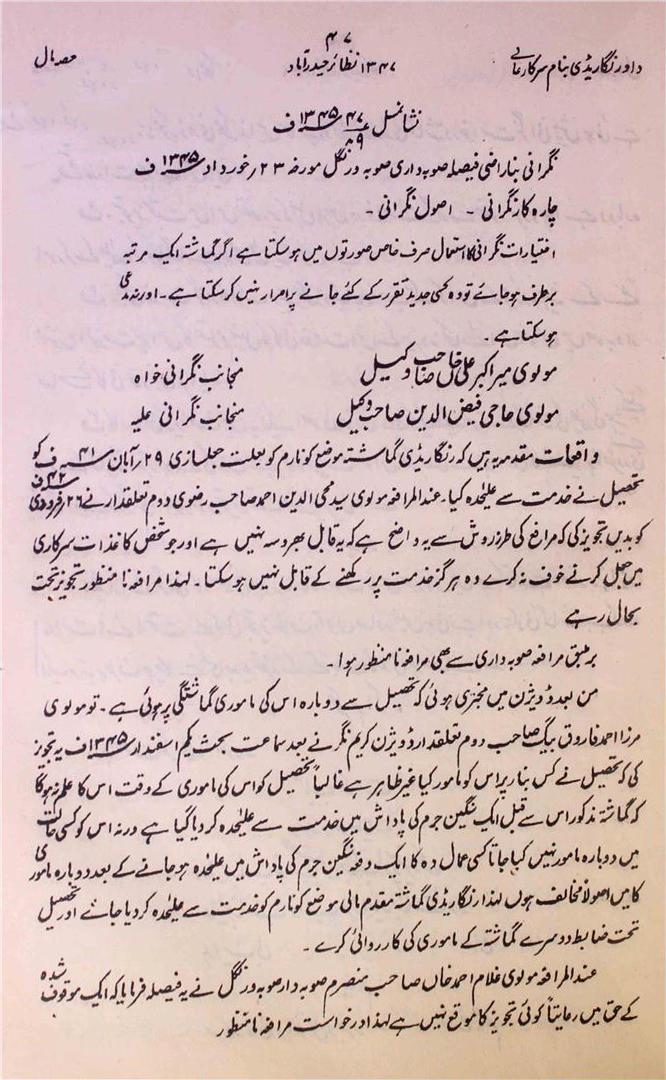 ۴۷
داور نگاریڈی بنام سرکارعالی ۱۳۴۷ نظائر حیدرآباد حصہ مال
نشانمثل ۴۷/۹ ۱۳۴۵ف
نگرانی بناراضی فیصلہ صوبہ داری صوبہ ورنگل مورخہ ۲۳؍خورداد ۱۳۴۵ف
چارہ کار نگرانی ۔ اصول نگرانی ۔
اختیارات نگرانی کا استعمال صرف خاص صورتوں میں ہوسکتا ہے اگر گماشتہ ایک مرتبہ
برطرف ہوجائے تو وہ کسی جدید تقرر کے کئے جانے پر اصرار نہیں کرسکتا ہے۔ اور نہ مدعی
ہوسکتا ہے۔
مولوی میر اکبر علی خاں صاحب وکیل منجانب نگرانی خواہ
مولوی حاجی فیض الدین صاحب وکیل منجانب نگرانی علیہ
واقعات مقدمہ یہ ہیں کہ رنگاریڈی گماشتہ موضع کونارم کو بعلت جعلسازی ۲۹؍آبان ۴۱ف کو
تحصیل نے خدمت سے علیٰحدہ کیا۔ عندالمرافعہ مولوی سید محی الدین احمد صاحب رضوی دوم تعلقدار نے ۲۶؍فروردی ۴۲ف
کو بدیں تجویز کی کہ مرافع کی طرز روش سے یہ واضح ہے کہ یہ قابل بھروسہ نہیں ہے اور جو شخص کاغذات سرکاری
میں جعل کرنے خوف نہ کرے وہ ہرگز خدمت پر رکھنے کے قابل نہیں ہوسکتا۔ لہذا مرافعہ نامنظور تجویز تحت
بحال رہے
برطبق مرافعہ صوبہ داری سے بھی مرافعہ نامنظور ہوا۔
من بعد ڈویژن میں مخبری ہوئی کہ تحصیل سے دوبارہ اس کی ماموری گماشتگی پر ہوئی ہے۔ تو مولوی
مرزا احمد فاروق بیگ صاحب دوم تعلقدار ڈویژن کریم نگر نے بعد سماعت بحث یکم اسفندار ۱۳۴۵ف یہ تجویز
کی کہ تحصیل نے کس بنا پر اس کو مامور کیا غیر ظاہر ہے غالباً تحصیل کو اس کی ماموری کے وقت اس کا علم نہ ہوگا
کہ گماشتہ مذکور اس سے قبل ایک سنگین جرم کی پاداش میں خدمت سے علیٰحدہ کردیا گیا ہے ورنہ اس کو کسی حالت
میں دوبارہ مامور نہیں کیا جاتا کسی عمال دہ کا ایک دفعہ سنگین جرم کی پاداش میں علیٰحدہ ہوجانے کے بعد دوبارہ ماموری
کا میں اصولاً مخالف ہوں لہذا رنگاریڈی گماشتہ مقدم مالی موضع کونارم کو خدمت سے علیٰحدہ کردیا جائے اور تحصیل
تحت ضابطہ دوسرے گماشتہ کے ماموری کی کارروائی کرے۔
عندالمرافعہ مولوی غلام احمد خاں صاحب منصرم صوبہ دار صوبہ ورنگل نے یہ فیصلہ فرمایا کہ ایک موقوف شدہ
کے حق میں رعایتاً کوئی تجویز کا موقع نہیں ہے لہذا درخواست مرافعہ نامنظور